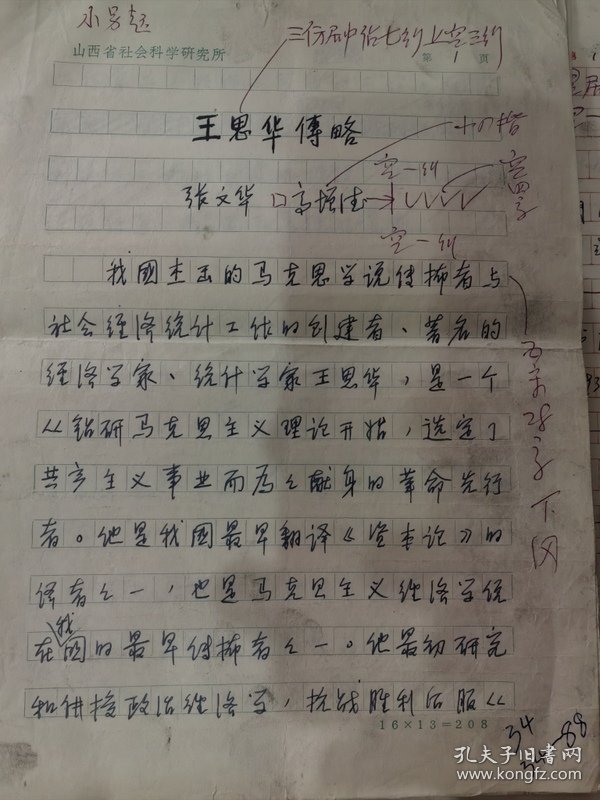 山西省社会科学研究所
第 1 页
王思华傳略
空一行
张文华 高增德
空四字
空一行
我國杰出的马克思学说传播者与
社会经济统计工作的创建者、著名的
经济学家、统计学家王思华，是一个
从钻研马克思主义理论开始，选定了
共产主义事业而为之献身的革命先行
者。他是我國最早翻译《资本论》的
译者之一，也是马克思主义经济学说
在我國的最早传播者之一。他最初研究
和讲授政治经济学，抗战胜利后服从
16×13=208
孔夫子旧书网
www.kongfz.com